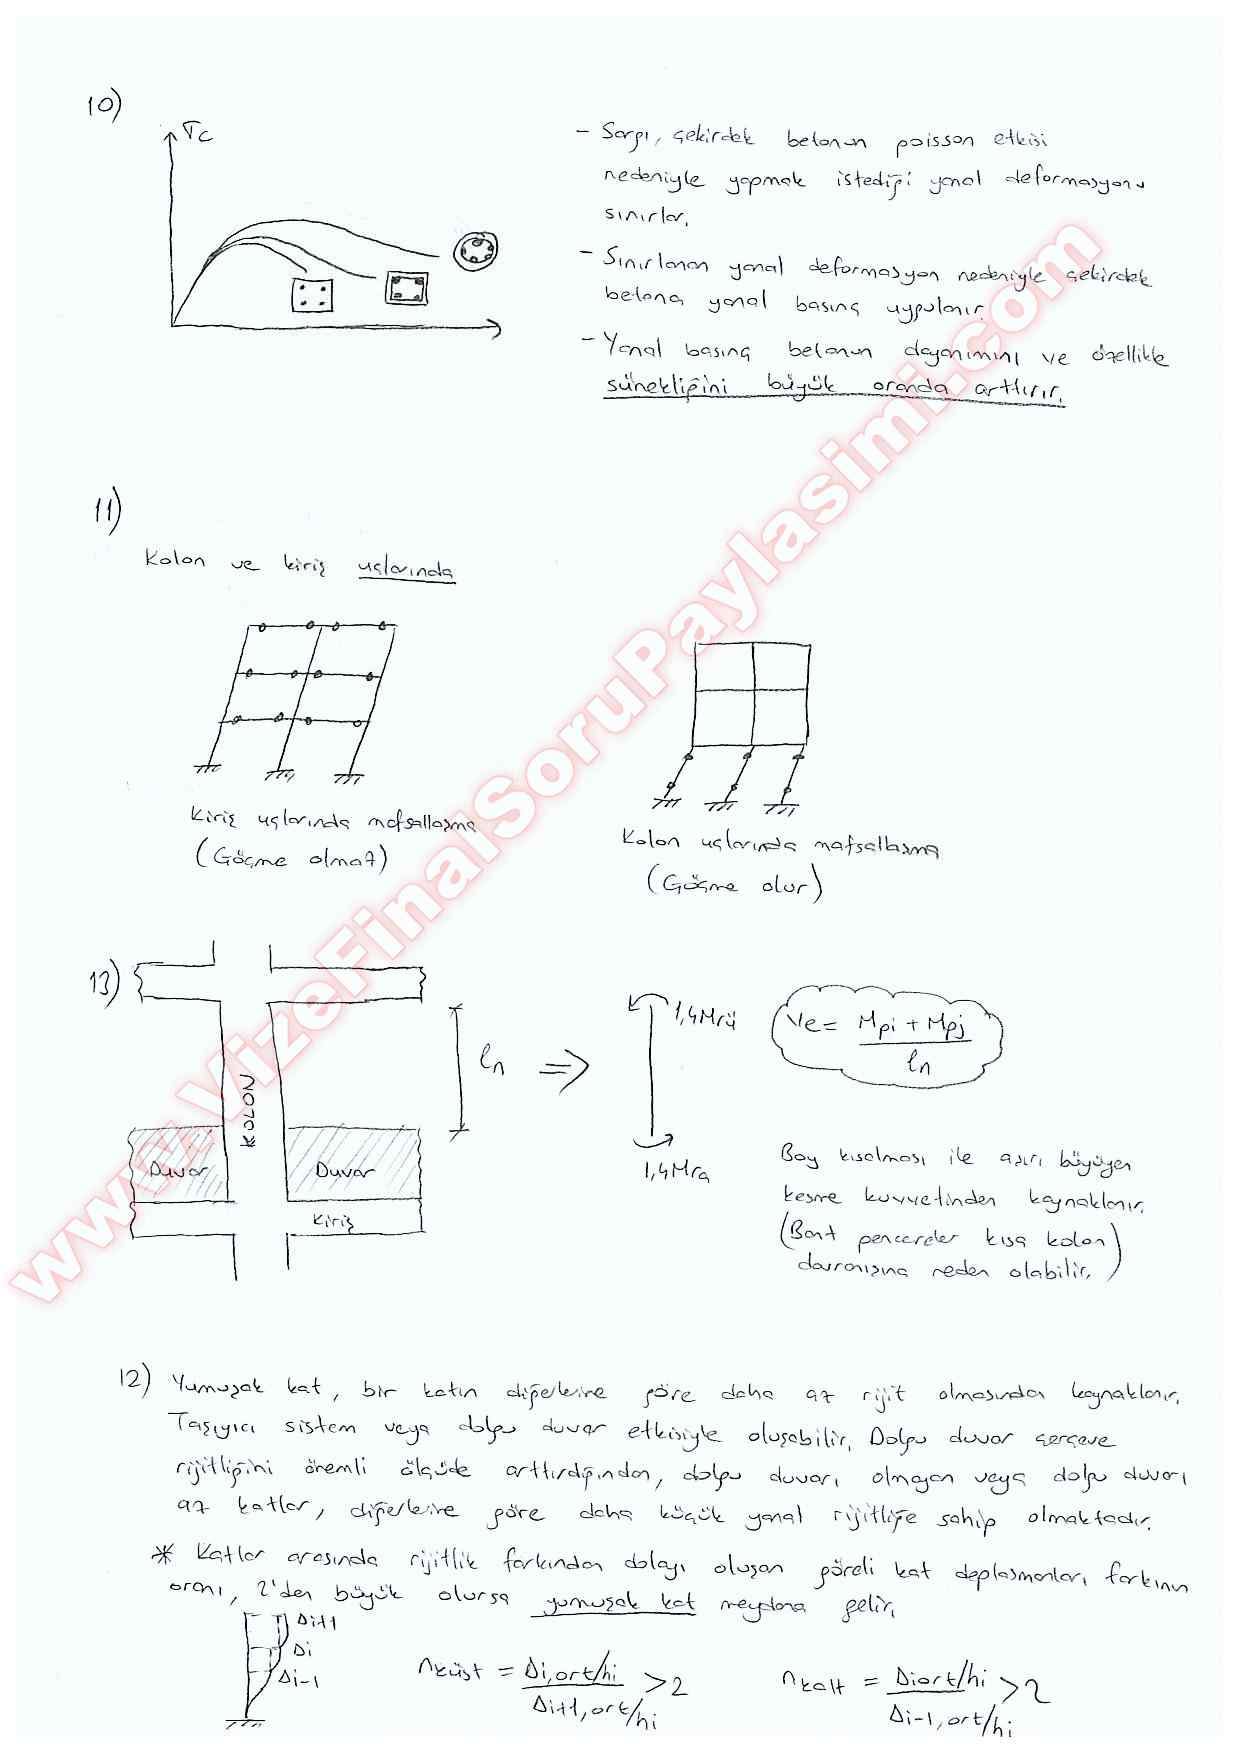 10)
σc
- Sargı, çekirdek betonun poisson etkisi
nedeniyle yapmak istediği yanal deformasyonu
sınırlar.
- Sınırlanan yanal deformasyon nedeniyle çekirdek
betona yanal basınç uygulanır.
- Yanal basınç betonun dayanımını ve özellikle
sünekliğini büyük oranda arttırır.
11)
Kolon ve kiriş uçlarında
Kiriş uçlarında mafsallaşma
(Göçme olmaz)
Kolon uçlarında mafsallaşma
(Göçme olur)
13)
KOLON
Duvar
Duvar
Kiriş
ln
⇒
1,4Mrü
1,4Mra
Ve = Mpi + Mpj / ln
Boy kısalması ile aşırı büyüyen
kesme kuvvetinden kaynaklanır.
(Bant pencereler kısa kolon
davranışına neden olabilir.)
12) Yumuşak kat, bir katın diğerlerine göre daha az rijit olmasından kaynaklanır.
Taşıyıcı sistem veya dolgu duvar etkisiyle oluşabilir. Dolgu duvar çerçeve
rijitliğini önemli ölçüde arttırdığından, dolgu duvarı olmayan veya dolgu duvarı
az katlar, diğerlerine göre daha küçük yanal rijitliğe sahip olmaktadır.
* Katlar arasında rijitlik farkından dolayı oluşan göreli kat deplasmanları farkının
oranı, 2'den büyük olursa yumuşak kat meydana gelir.
Δi+1
Δi
Δi-1
nküst = Δi,ort/hi / Δi+1,ort/hi > 2
nkalt = Δiort/hi / Δi-1,ort/hi > 2
www.VizeFinalSoruPaylasimi.com